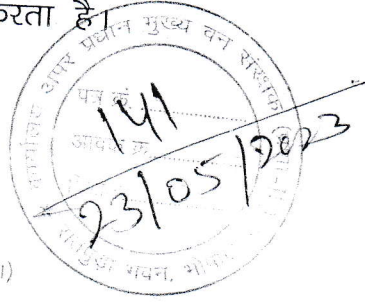 करता है।
कार्यालय अपर प्रधान मुख्य वन संरक्षक
पत्र क्रं.
141
आवक क्र.
23/05/2023
सतपुड़ा भवन, भोपाल